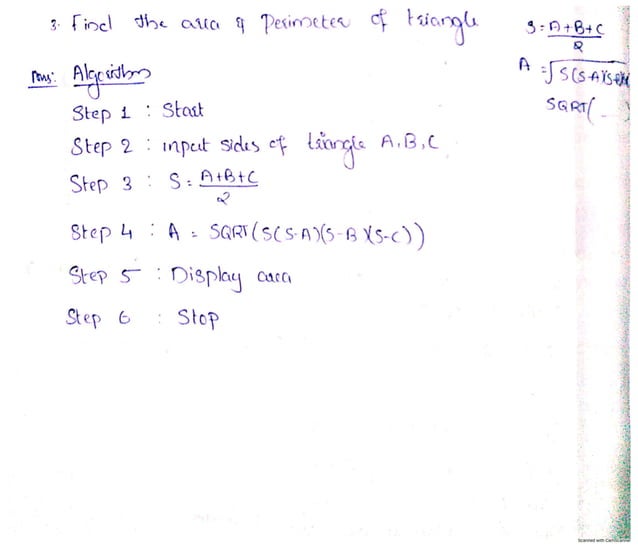 3. Find the area & Perimeter of triangle
S = A+B+C
2
A = √S(S-A)(S-B)(
SQRT(
Ans: Algorithm
Step 1 : Start
Step 2 : input sides of triangle A, B, C
Step 3 : S = A+B+C
2
Step 4 : A = SQRT(S(S-A)(S-B)(S-C))
Step 5 : Display area
Step 6 : Stop
Scanned with CamScanner